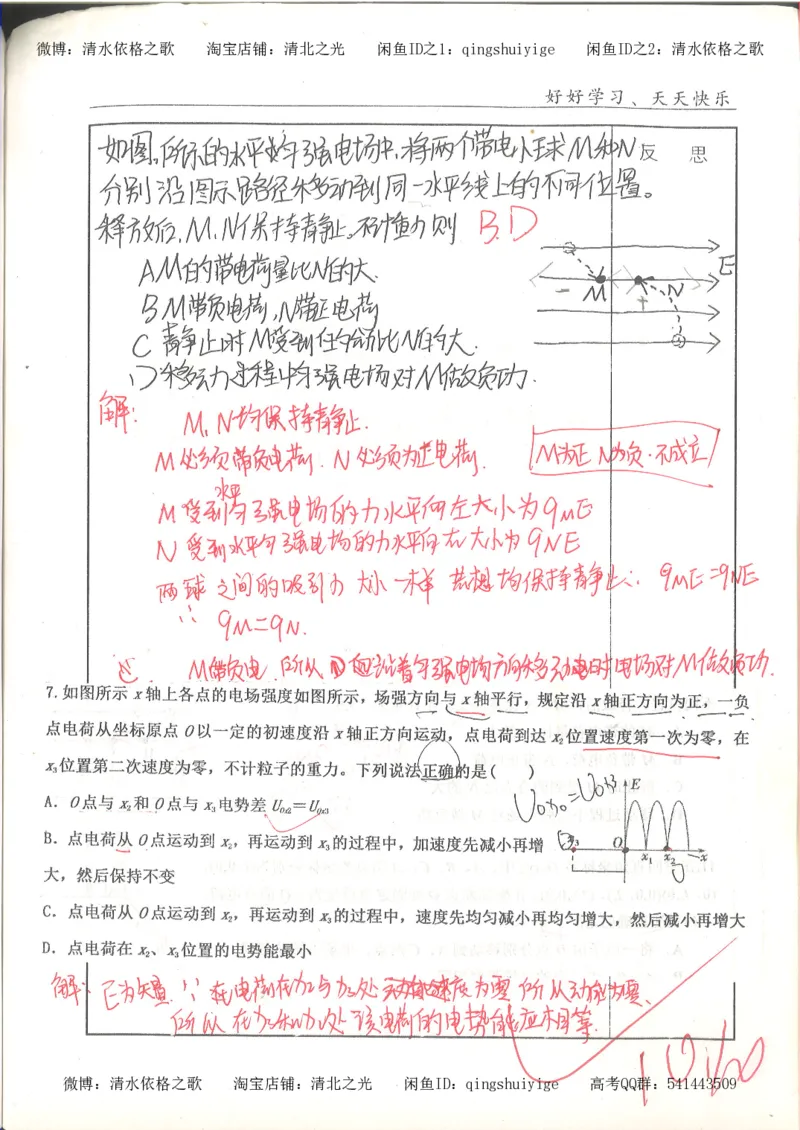 微博：清水依格之歌 淘宝店铺：清北之光 闲鱼ID之1：qingshuiyige 闲鱼ID之2：清水依格之歌
好好学习、天天快乐
如图,所示的水平匀强电场中,将两个带电小球M和N
反 思
分别沿图示路径移动到同一水平线上的不同位置。
释放后,M,N保持静止。不计重力则 B.D
A M的带电荷量比N的大.
B M带负电荷,N带正电荷
C 静止时M受到的合力比N的大.
D 移动过程中匀强电场对M做负功.
E
M N
- +
解:
M,N均保持静止.
M必须带负电荷. N必须为正电荷.
M为正 N为负.不成立
M受到水平匀强电场的力水平向左大小为qME
N受到水平匀强电场的力水平向右大小为qNE
两球之间的吸引力 大小一样 若想均保持静止∴ qME=qNE
∴ qM=qN.
M带负电.所以 沿着匀强电场方向移动电时电场对M做负功.
7.如图所示x轴上各点的电场强度如图所示，场强方向与x轴平行，规定沿x轴正方向为正，一负
点电荷从坐标原点O以一定的初速度沿x轴正方向运动，点电荷到达x₂位置速度第一次为零，在
x₃位置第二次速度为零，不计粒子的重力。下列说法正确的是( )
A．O点与x₂和O点与x₃电势差U₀ₓ₂=U₀ₓ₃
B．点电荷从O点运动到x₂，再运动到x₃的过程中，加速度先减小再增
大，然后保持不变
C．点电荷从O点运动到x₂，再运动到x₃的过程中，速度先均匀减小再均匀增大，然后减小再增大
D．点电荷在x₂、x₃位置的电势能最小
E
x₃ O x₁ x₂ x
解: E为矢量 ∵在电荷在x₂与x₃处速度为零 所以动能为零、
所以在x₂和x₃处该电荷的电势能应相等.
微博：清水依格之歌 淘宝店铺：清北之光 闲鱼ID：qingshuiyige 高考QQ群：541443509